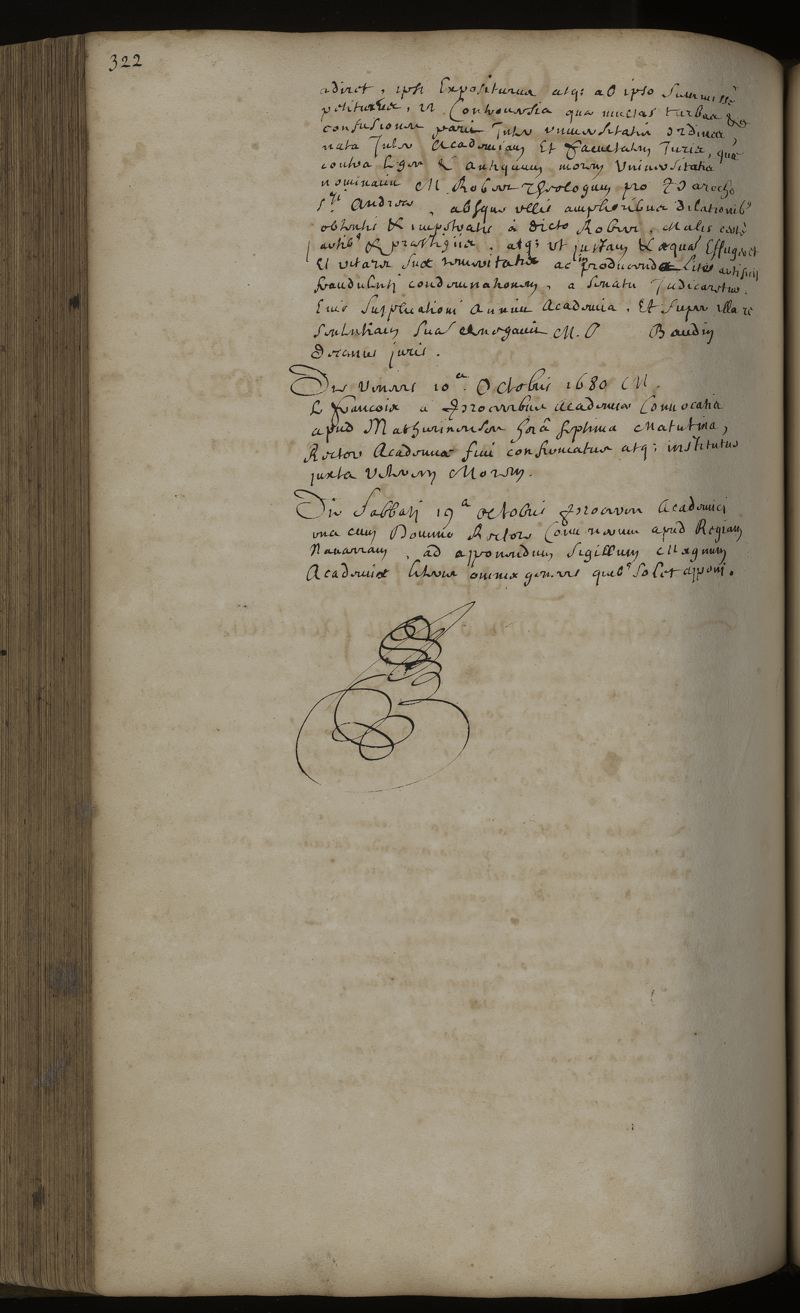 322
adiret, ipsi Expositurus atq; ab ipso
petiturus, in Controversia quæ multas turbas &
confusiones parit Inter universitatis ordines
nata Inter Academiam Et Facultatem Juris, quæ
contra Leges & antiquum morem Universitatis
nominavit M Rober Theologum pro Parocho
Sti Andreæ, absque ullis amplioribus dilationibs
obtentis & impetratis à dicto Rober, Malis
artibs & præstigiis, atq; ut justam & æquas Effugeret
Et vitaret suæ temeritatis ac producendæ litis
fraudulenti condemnationem, a senatu
Eius supplicationi annuit Academia, Et super illa re
Sententiam suam M. P Baudin
Decanus juris.
Die Veneris 10a. Octobris 1680 M.
L François a Proceribus Academiæ Convocatis
apud Mathurinenses horâ septima Matutina,
Rector Academiæ fuit confirmatus atq; institutus
juxta Veterem Morem.
Die Sabbati 19a octobris Proceres Academici
una cum Domino Rectore Convenerunt apud Regiam
Navarram, ad apponendum Sigillum Magnum
Academiæ litteris omnis generis quibs solet apponi.